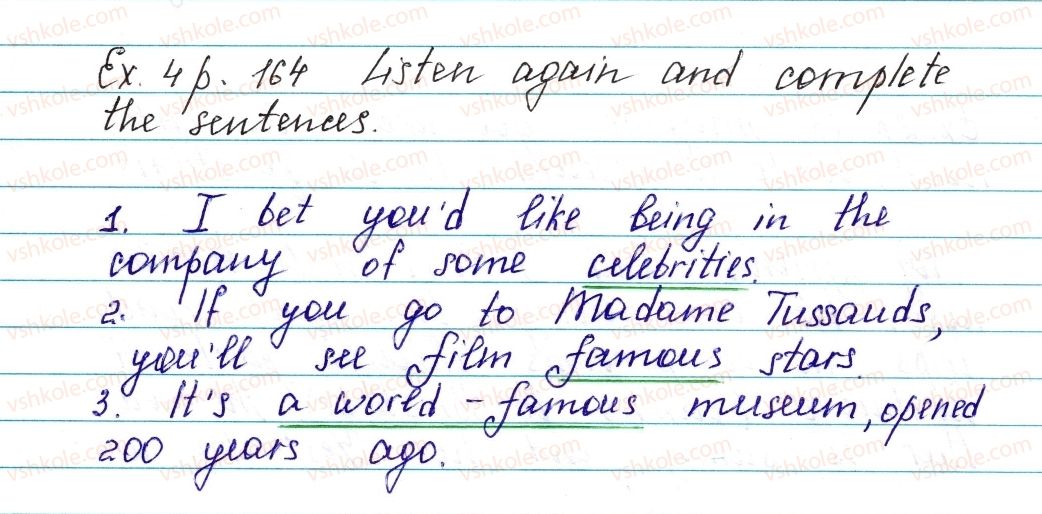 Ex. 4 p. 164 Listen again and complete
the sentences.
1. I bet you'd like being in the
company of some celebrities.
2. If you go to Madame Tussauds,
you'll see film famous stars.
3. It's a world-famous museum, opened
200 years ago.